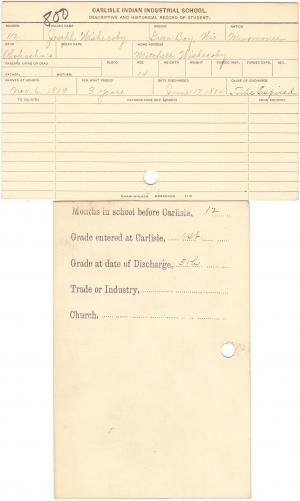 800
CARLISLE INDIAN INDUSTRIAL SCHOOL.
DESCRIPTIVE AND HISTORICAL RECORD OF STUDENT.
NUMBER ENGLISH NAME AGENCY NATION
112 Joseph Wishecoby Green Bay Wis Menomonee
BAND INDIAN NAME HOME ADDRESS
Mitchell Wishecoby
PARENTS LIVING OR DEAD BLOOD AGE HEIGHT WEIGHT FORCED INSP. FORCED EXPR. SEX.
FATHER, MOTHER, 14
ARRIVED AT SCHOOL FOR WHAT PERIOD DATE DISCHARGED CAUSE OF DISCHARGE
Nov. 6, 1889 3 years June 17, 1894 Time Expired
TO COUNTRY FROM COUNTRY
Months in school before Carlisle, 12
Grade entered at Carlisle, 1st
Grade at date of Discharge, 5th
Trade or Industry,
Church,